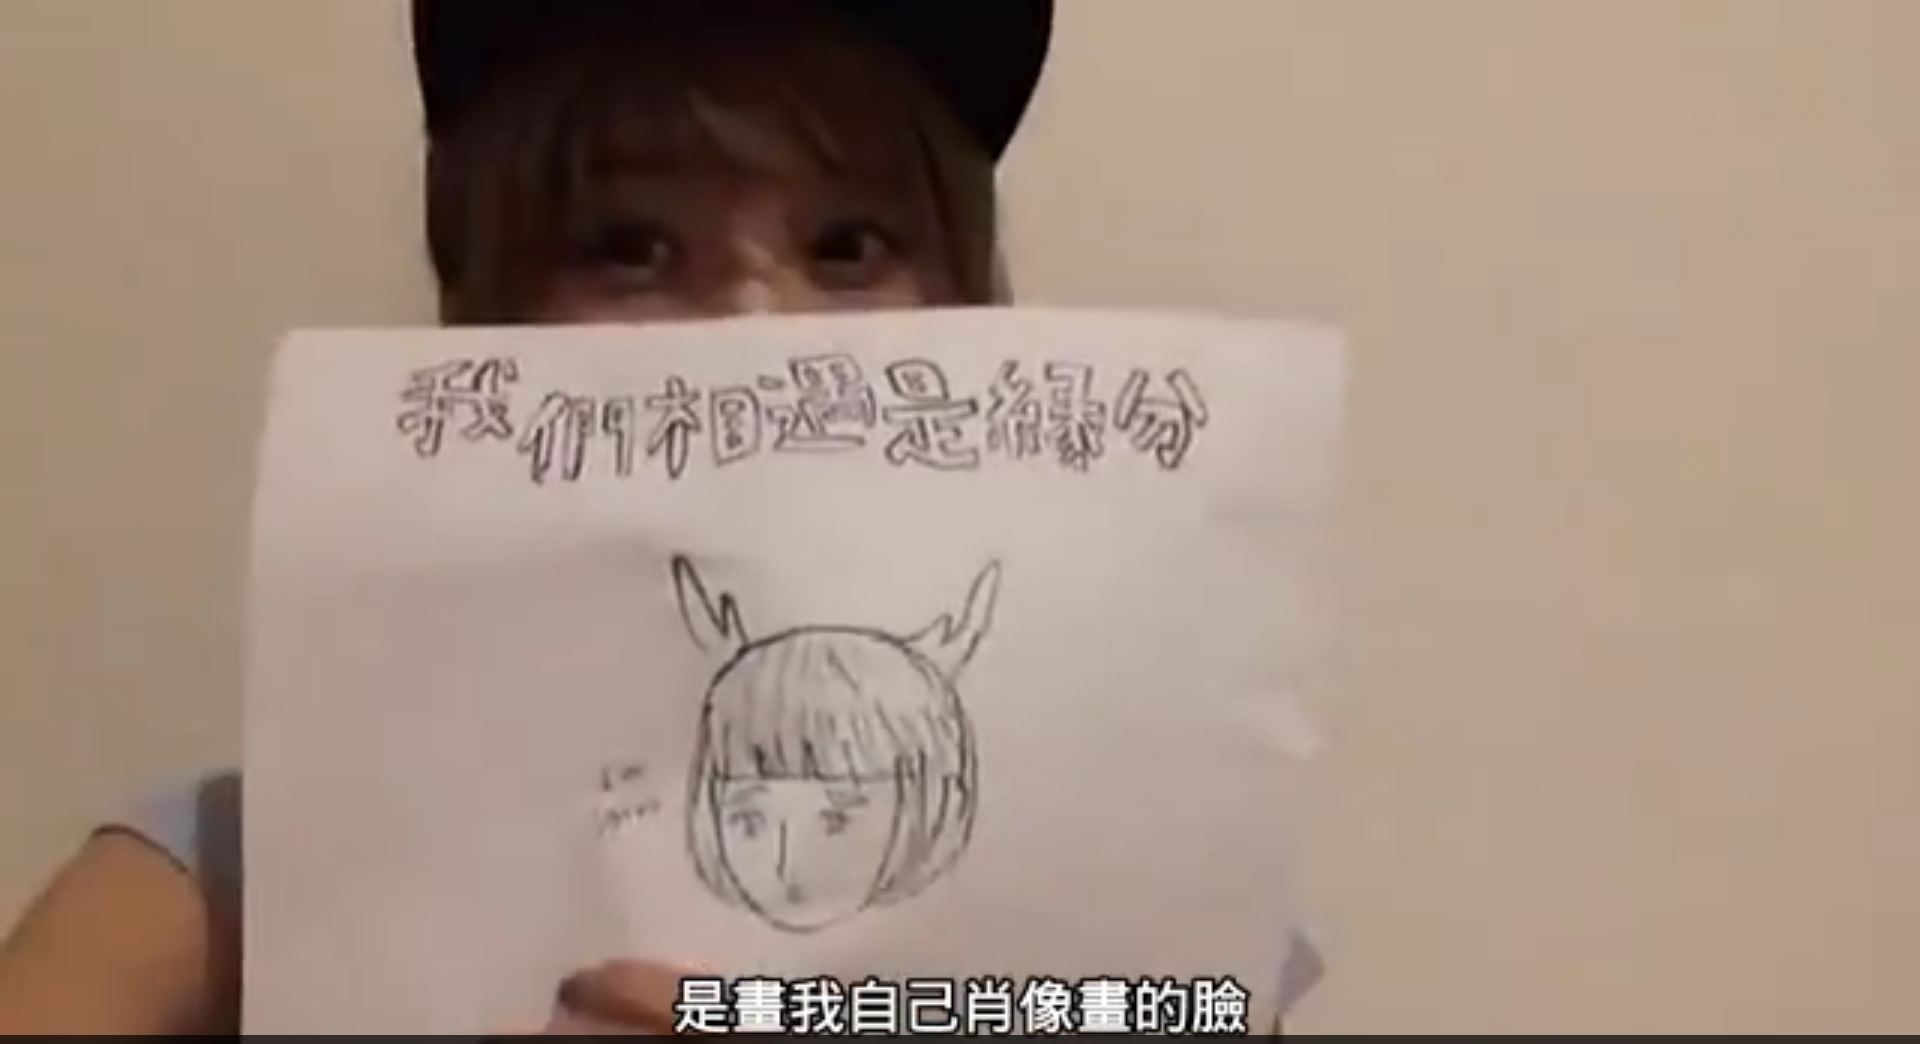 我們相遇是緣分
是畫我自己肖像畫的臉